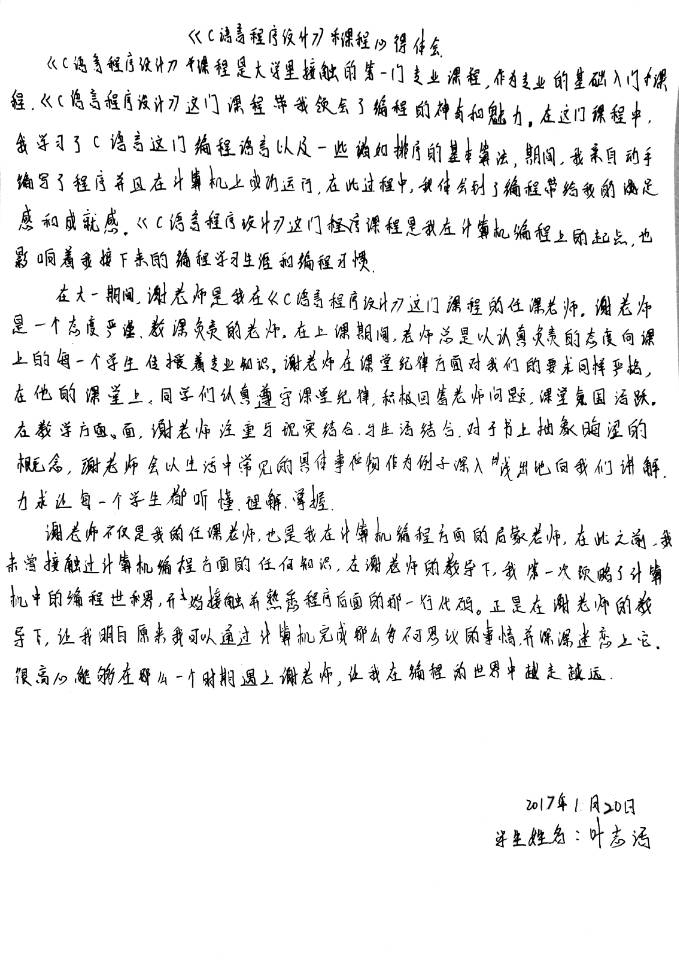 《C语言程序设计》课程心得体会
《C语言程序设计》课程是大学里接触的第一门专业课程，作为专业的基础入门课
程，《C语言程序设计》这门课程带我领会了编程的神奇和魅力。在这门课程中，
我学习了C语言这门编程语言以及一些诸如排序的基本算法，期间，我亲自动手
编写了程序并且在计算机上成功运行，在此过程中，我体会到了编程带给我的满足
感和成就感。《C语言程序设计》这门程序课程是我在计算机编程上的起点，也
影响着我接下来的编程学习生涯和编程习惯.
在大一期间，谢老师是我在《C语言程序设计》这门课程的任课老师。谢老师
是一个态度严谨、教课负责的老师。在上课期间，老师总是以认真负责的态度向课
上的每一个学生传授着专业知识。谢老师在课堂纪律方面对我们的要求同样严格，
在他的课堂上，同学们认真遵守课堂纪律，积极回答老师问题，课堂氛围活跃。
在教学方面，谢老师注重与现实结合、与生活结合，对于书上抽象晦涩的
概念，谢老师会以生活中常见的具体事物作为例子深入浅出地向我们讲解，
力求让每一个学生都听懂、理解、掌握.
谢老师不仅是我的任课老师，也是我在计算机编程方面的启蒙老师，在此之前，我
未曾接触过计算机编程方面的任何知识，在谢老师的教导下，我第一次领略了计算
机中的编程世界，开始接触并熟悉程序后面的那一行代码。正是在谢老师的教
导下，让我明白原来我可以通过计算机完成那么多不可思议的事情，并深深迷恋上它。
很高兴能够在那么一个时期遇上谢老师，让我在编程的世界中越走越远.
2017年1月20日
学生姓名：叶志